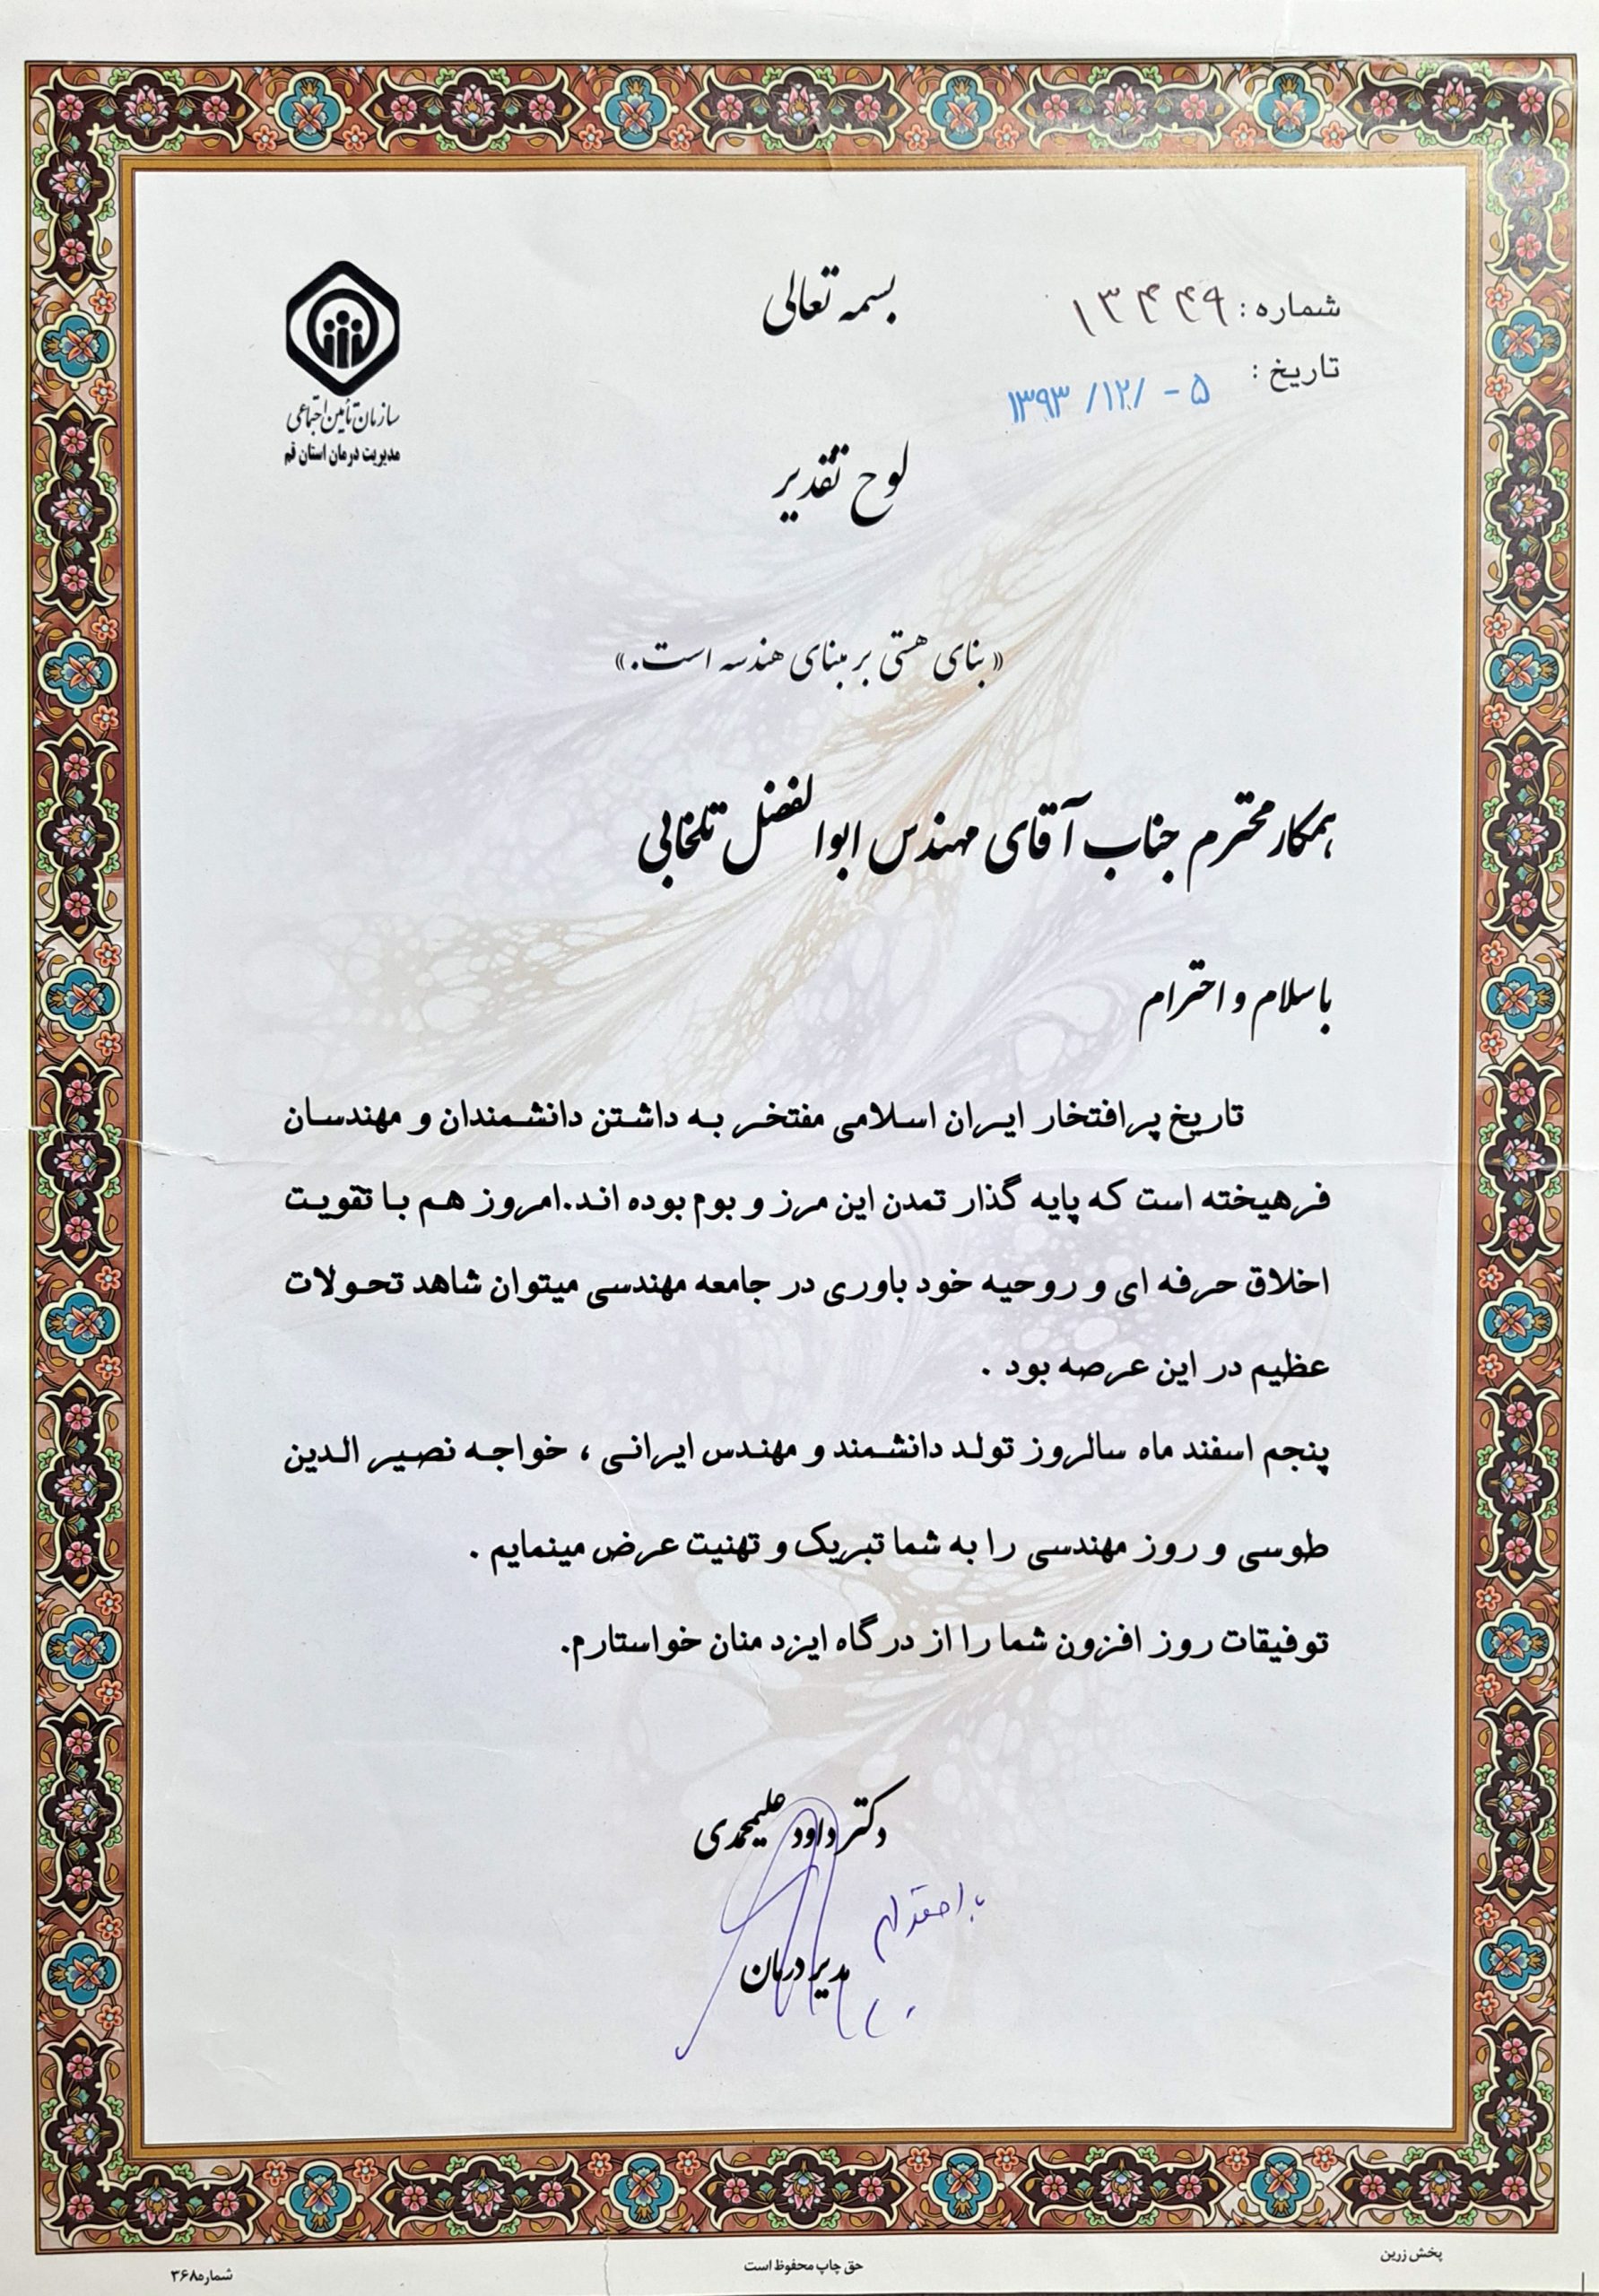 بسمه تعالی
شماره: ۱۳۴۴۹
تاریخ: ۱۳۹۳/۱۲/-۵
سازمان تأمین اجتماعی
مدیریت درمان استان قم
لوح تقدیر
«بنای هستی بر مبنای هندسه است.»
همکار محترم جناب آقای مهندس ابوالفضل تلخابی
با سلام و احترام
تاریخ پر افتخار ایران اسلامی مفتخر به داشتن دانشمندان و مهندسان
فرهیخته است که پایه گذار تمدن این مرز و بوم بوده اند.امروز هم با تقویت
اخلاق حرفه ای و روحیه خود باوری در جامعه مهندسی میتوان شاهد تحولات
عظیم در این عرصه بود .
پنجم اسفند ماه سالروز تولد دانشمند و مهندس ایرانی ، خواجه نصیر الدین
طوسی و روز مهندسی را به شما تبریک و تهنیت عرض مینمایم .
توفیقات روز افزون شما را از درگاه ایزد منان خواستارم.
دکتر داود علیمحمدی
مدیر درمان
پخش زرین
حق چاپ محفوظ است
شماره۳۶۸